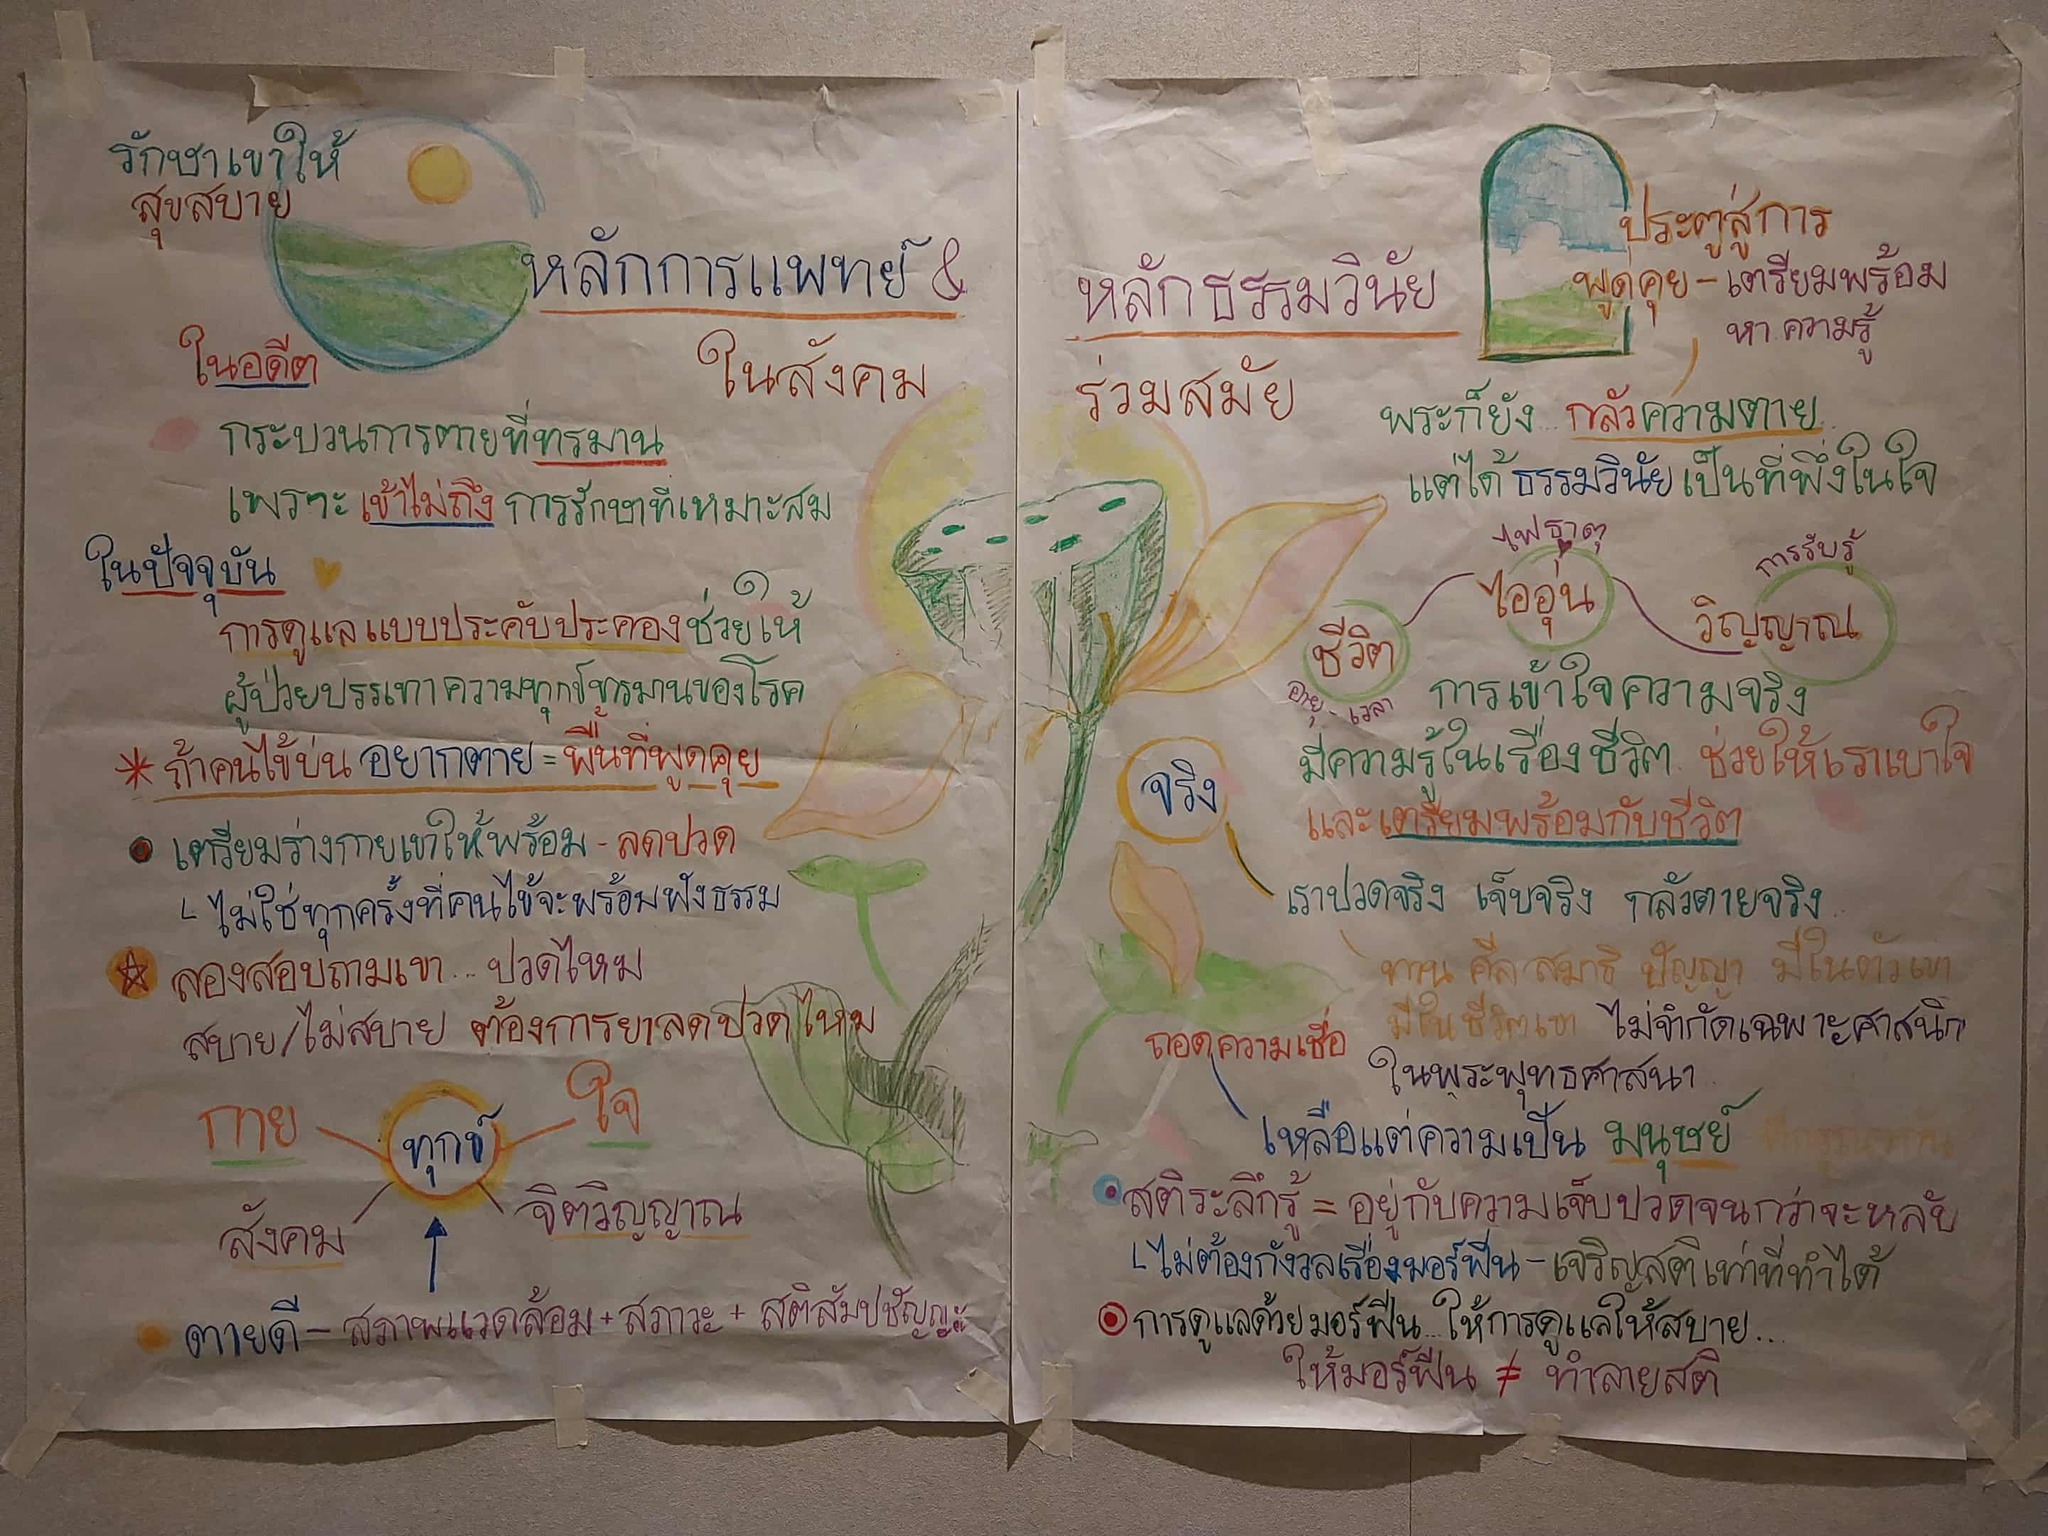 รักษาเขาให้
สุขสบาย
หลักการแพทย์ &
ในสังคม
ในอดีต
กระบวนการตายที่ทรมาน
เพราะ เข้าไม่ถึง การรักษาที่เหมาะสม
ในปัจจุบัน
การดูแลแบบประคับประคองช่วยให้
ผู้ป่วยบรรเทาความทุกข์ทรมานของโรค
* ถ้าคนไข้บ่น อยากตาย = พื้นที่พูดคุย
เตรียมร่างกายเขาให้พร้อม - ลดปวด
ไม่ใช่ทุกครั้งที่คนไข้จะพร้อมฟังธรรม
ลองสอบถามเขา... ปวดไหม
สบาย/ไม่สบาย ต้องการยาลดปวดไหม
กาย
ใจ
ทุกข์
สังคม
จิตวิญญาณ
ตายดี - สภาพแวดล้อม + สภาวะ + สติสัมปชัญญะ
หลักธรรมวินัย
ร่วมสมัย
ประตูสู่การ
พูดคุย - เตรียมพร้อม
หาความรู้
พระก็ยัง... กลัวความตาย
แต่ได้ ธรรมวินัย เป็นที่พึ่งในใจ
ไฟธาตุ
ไออุ่น
การรับรู้
วิญญาณ
ชีวิต
อายุ - เวลา
การเข้าใจความจริง
มีความรู้ในเรื่องชีวิต ช่วยให้เราเบาใจ
และเตรียมพร้อมกับชีวิต
จริง
เราปวดจริง เจ็บจริง กลัวตายจริง
ทาน ศีล สมาธิ ปัญญา มีในตัวเขา
มีในชีวิตเขา ไม่จำกัดเฉพาะศาสนิก
ในพระพุทธศาสนา
ถอดความเชื่อ
เหลือแต่ความเป็น มนุษย์
สติระลึกรู้ = อยู่กับความเจ็บปวดจนกว่าจะหลับ
ไม่ต้องกังวลเรื่องมอร์ฟีน - เจริญสติเท่าที่ทำได้
การดูแลด้วยมอร์ฟีน... ให้การดูแลให้สบาย...
ให้มอร์ฟีน ≠ ทำลายสติ